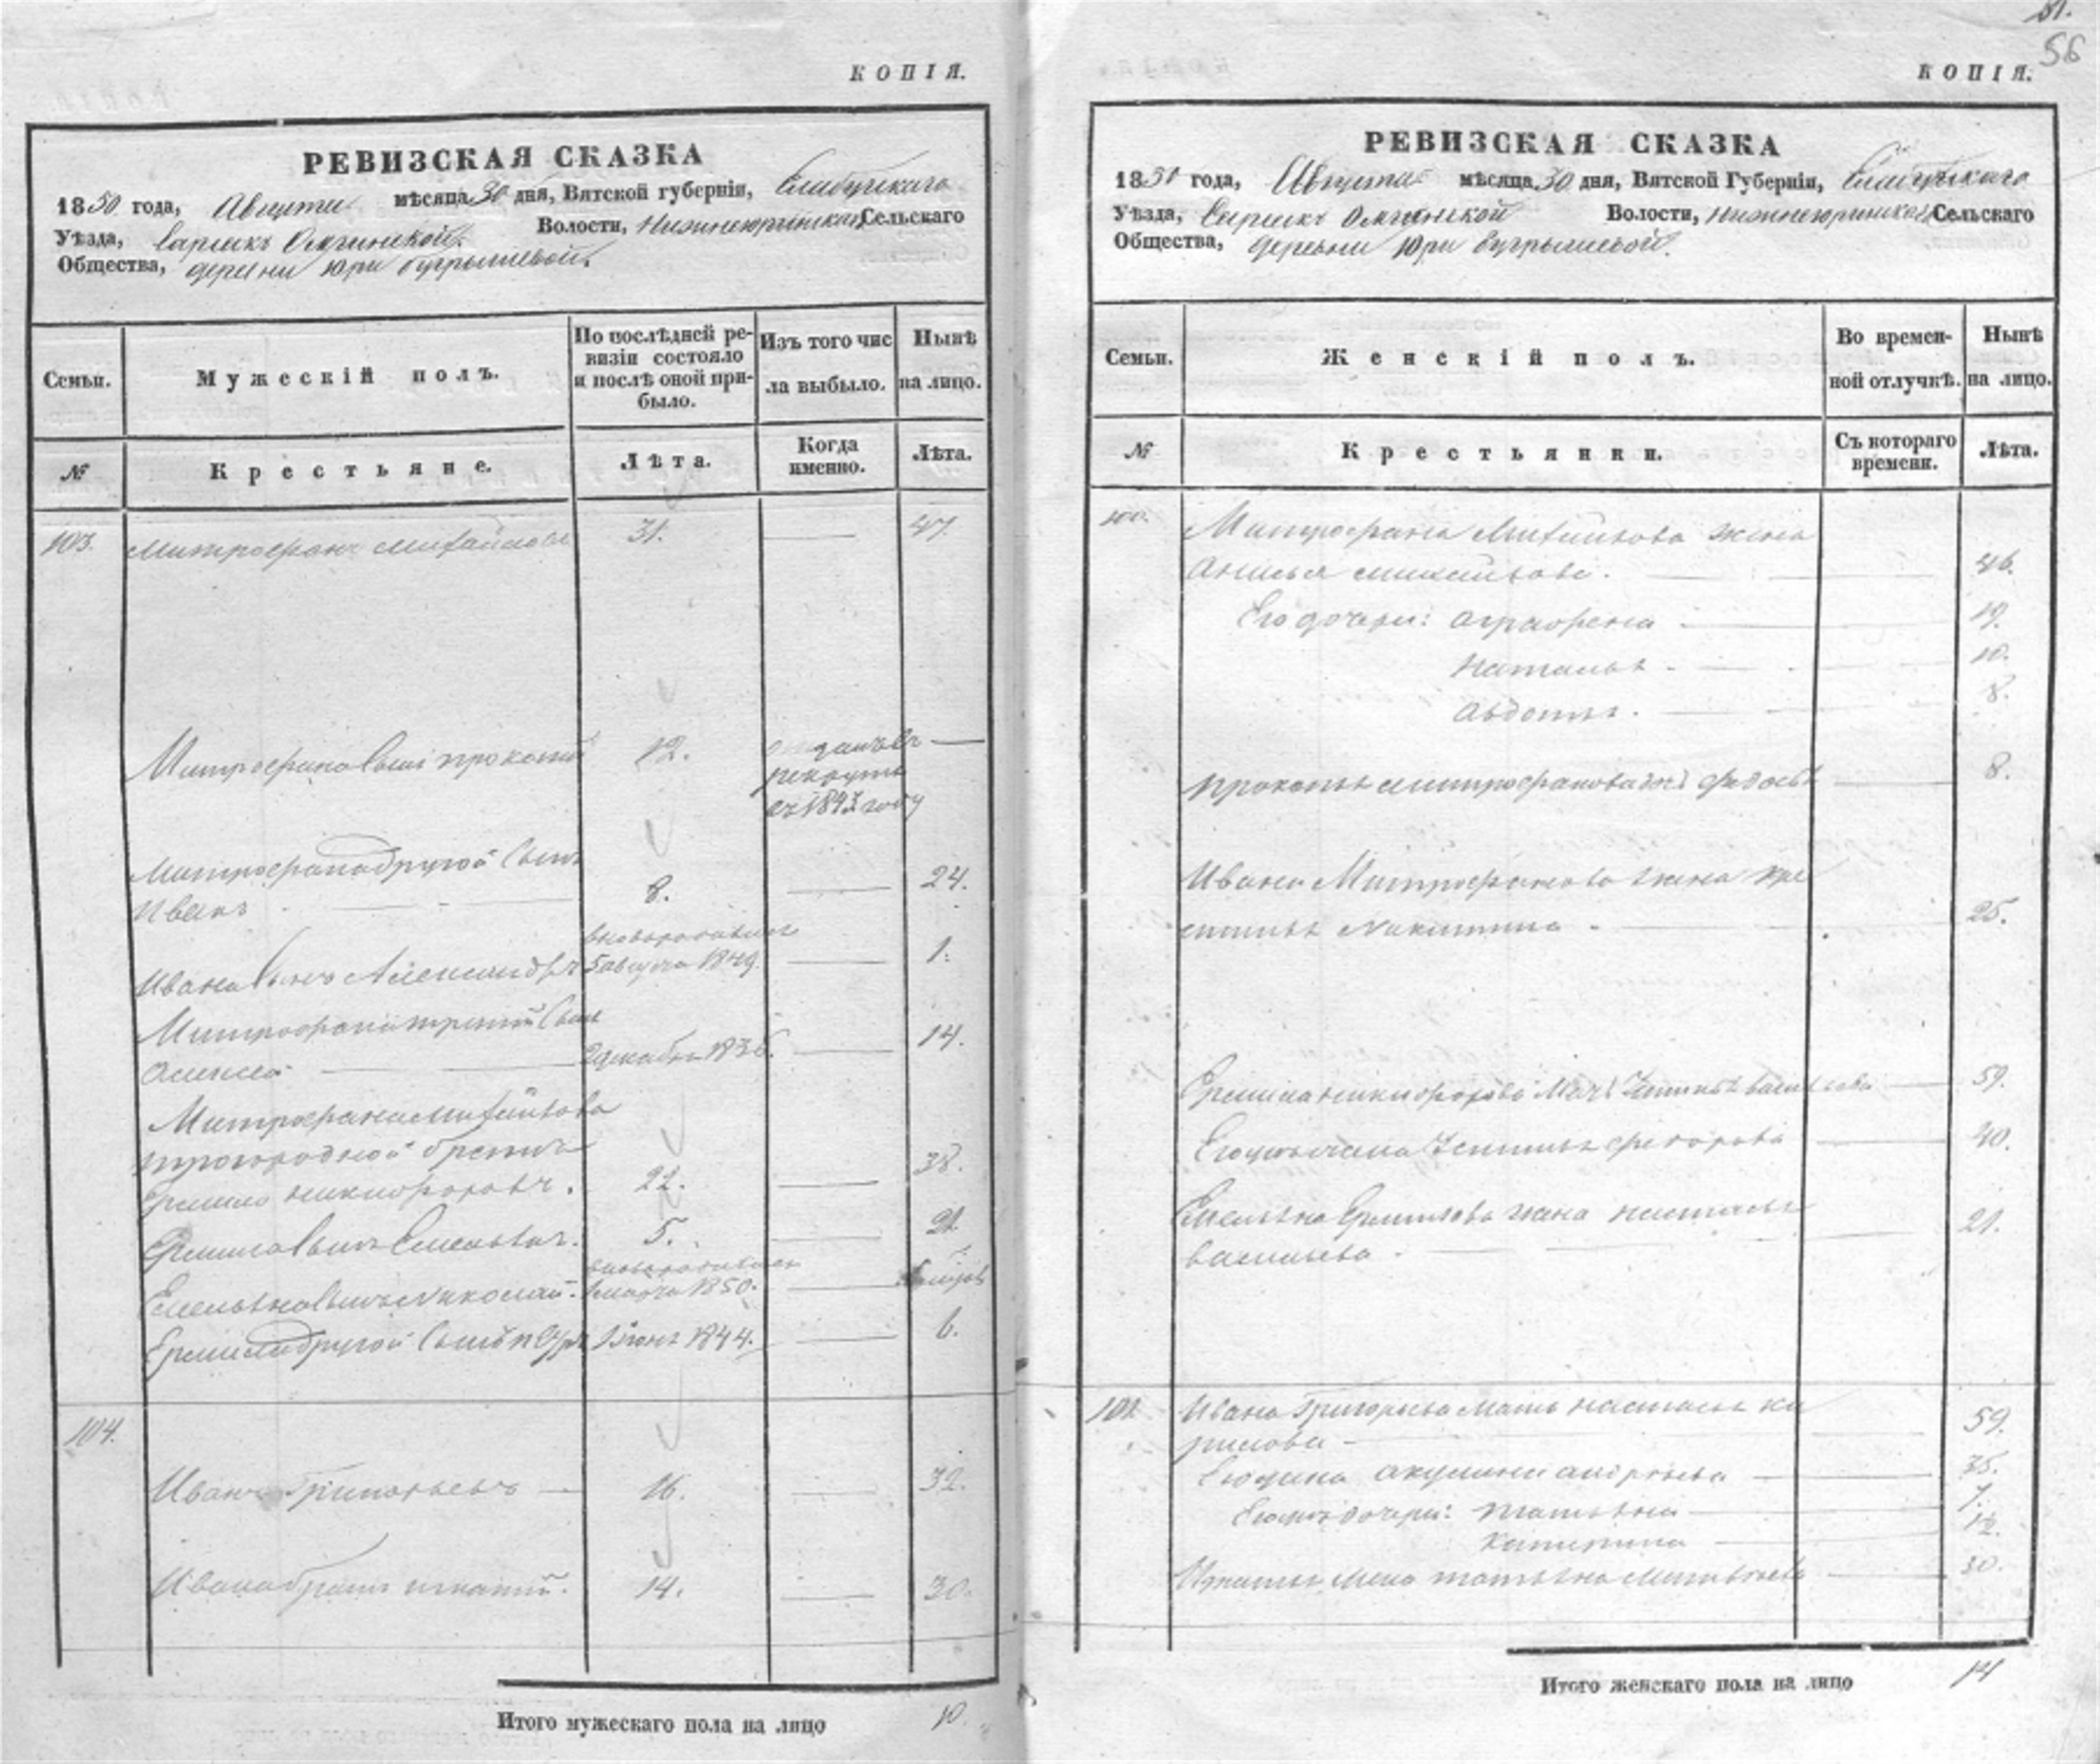 КОПІЯ.
РЕВИЗСКАЯ СКАЗКА
1850 года, Августа мѣсяца 30 дня, Вятской губерніи, Елабужскаго
Уѣзда, Сарсакъ Омгинской Волости, Нижнеюринскаго Сельскаго
Общества, деревни Юри Бугрышевой.
Семьи.
Мужескій полъ.
По послѣдней ре-
визіи состояло
и послѣ оной при-
было.
Изъ того чис
ла выбыло.
Нынѣ
на лицо.
№
Крестьяне.
Лѣта.
Когда
именно.
Лѣта.
103. Митрофанъ Михайловъ 31. 47.
Митрофана Сынъ Прокопій 12. отданъ въ
рекруты
въ 184 году
Митрофана другой Сынъ
Иванъ 8. 24.
вноворожденъ
Ивана Сынъ Александръ 5 августа 1849. 1.
Митрофана третій Сынъ
Алексей 2 декабря 1836. 14.
Митрофана Михайлова
троюродной братъ
Ермило Никифоровъ. 22. 38.
Ермила Сынъ Емельянъ. 5. 21
вноворожденъ
Емельяна Сынъ Николай. марта 1850.
Ермила другой Сынъ 1844. 6.
104.
Иванъ Григорьевъ 16. 32.
Ивана братъ Игнатій. 14. 30.
Итого мужескаго пола на лицо 10.
51.
56
КОПІЯ.
РЕВИЗСКАЯ СКАЗКА
1850 года, Августа мѣсяца 30 дня, Вятской Губерніи, Елабужскаго
Уѣзда, Сарсакъ Омгинской Волости, Нижнеюринскаго Сельскаго
Общества, деревни Юри Бугрышевой.
Семьи.
Женскій полъ.
Во времен-
ной отлучкѣ.
Нынѣ
на лицо.
№
Крестьянки.
Съ котораго
времени.
Лѣта.
100. Митрофана Михайлова жена
Анисья Михайлова. 46.
Его дочери: Аграфена 19.
Наталья 10.
Авдотья. 8.
Прокопья Митрофанова Федосья 8.
Ивана Митрофанова жена Хри
стинья Никитина 25.
Ермила Никифорова Мать Устинья Васильева 59.
Его жена Устинья Федорова 40.
Емельяна Ермилова жена Настасья
Васильева 21.
101. Ивана Григорьева мать Настасья Ки
рилова 59.
Его жена Акулина Андреева 35.
Его дочери: Татьяна 7.
Катерина 12.
Игнатья жена Татьяна 30.
Итого женскаго пола на лицо 14